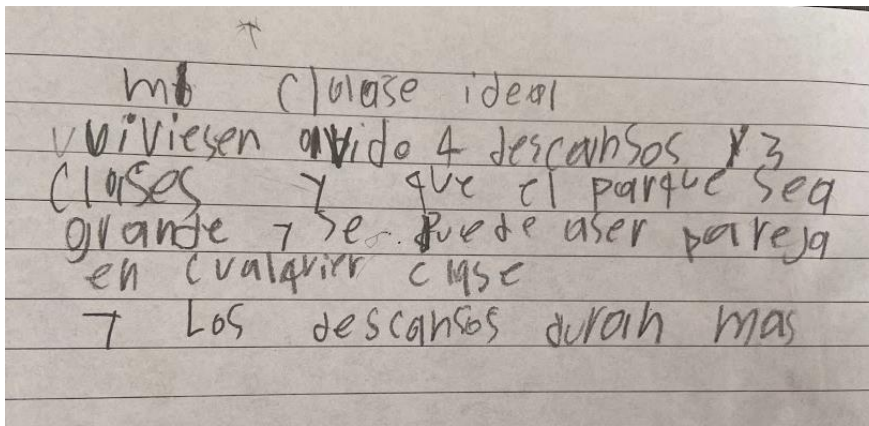 mi clase ideal
uviviesen avido 4 descansos y 3
clases y que el parque sea
grande y se puede aser pareja
en cualqrier clase
y Los descansos duran mas